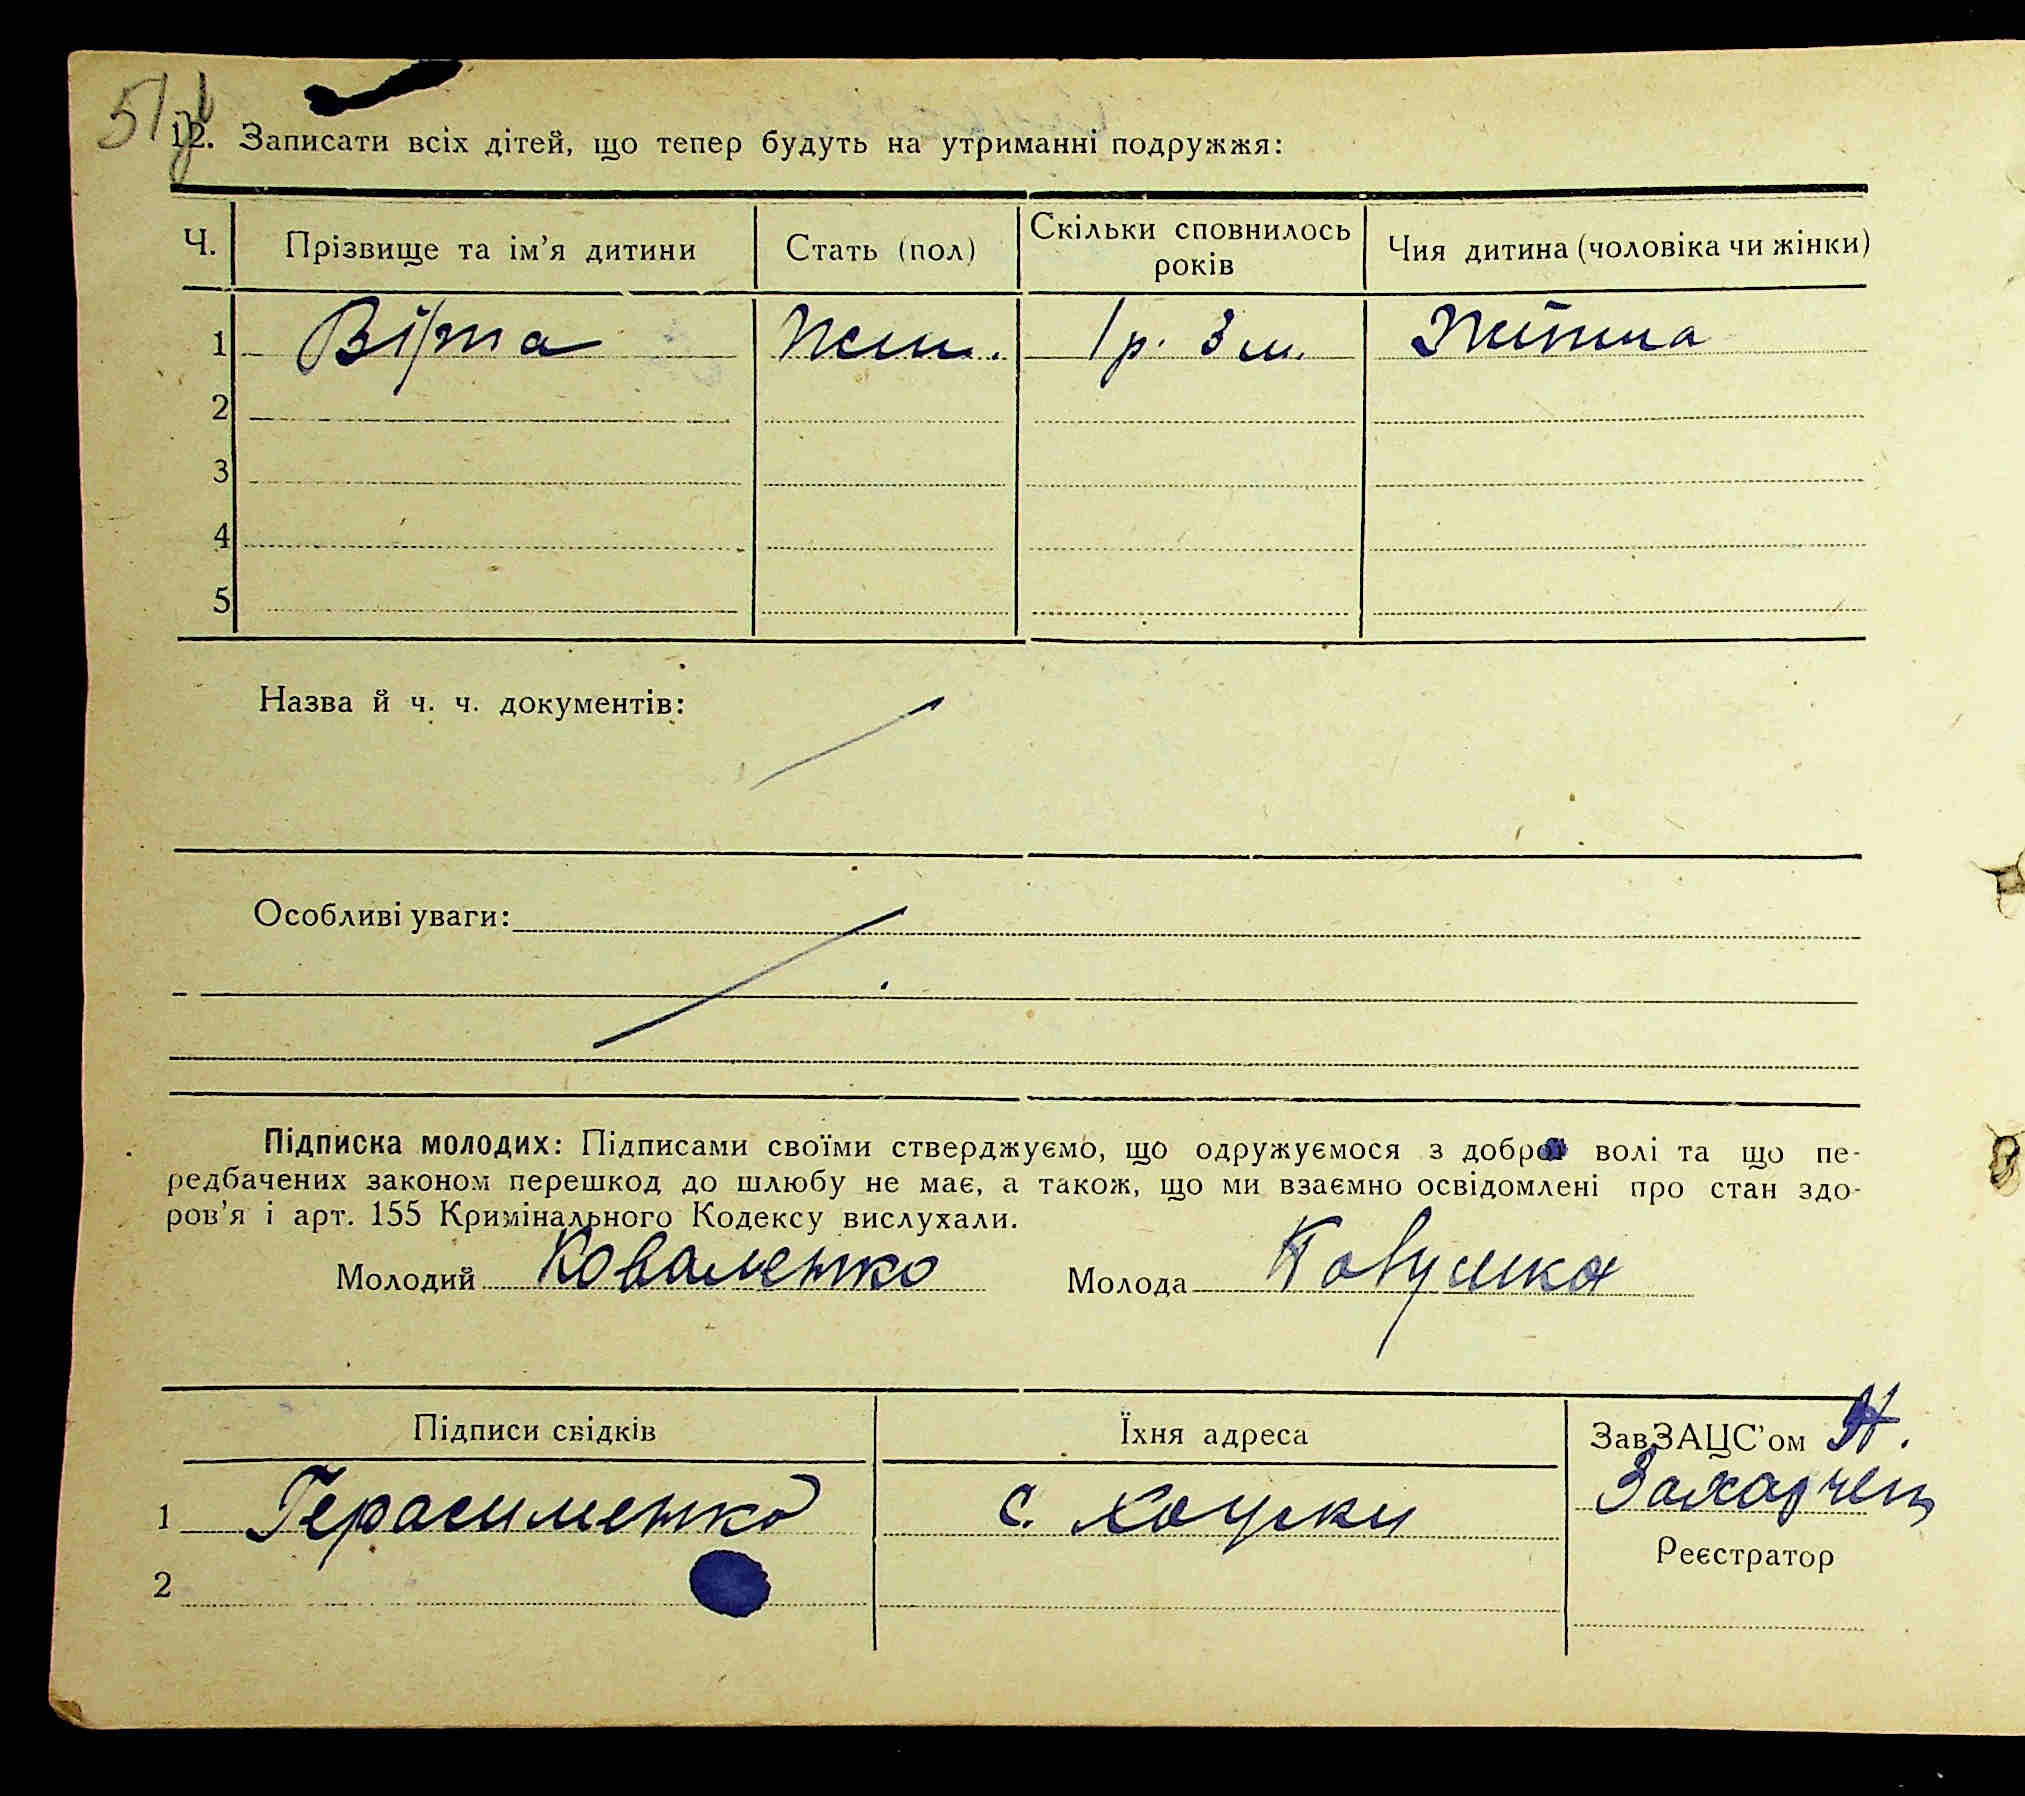 51
12. Записати всіх дітей, що тепер будуть на утриманні подружжя:
Ч. Прізвище та ім’я дитини Стать (пол) Скільки сповнилось років Чия дитина (чоловіка чи жінки)
1 Вірта Жен. 1 р. 3 м. Жінша
2
3
4
5
Назва й ч. ч. документів:
Особливі уваги:
Підписка молодих: Підписами своїми стверджуємо, що одружуємося з доброї волі та що пе-
редбачених законом перешкод до шлюбу не має, а також, що ми взаємно освідомлені про стан здо-
ров’я і арт. 155 Кримінального Кодексу вислухали.
Молодий Коваленко Молода
Підписи свідків Їхня адреса ЗавЗАЦС’ом
1 Герасименко с. Хоцьки Захарчен
Реєстратор
2